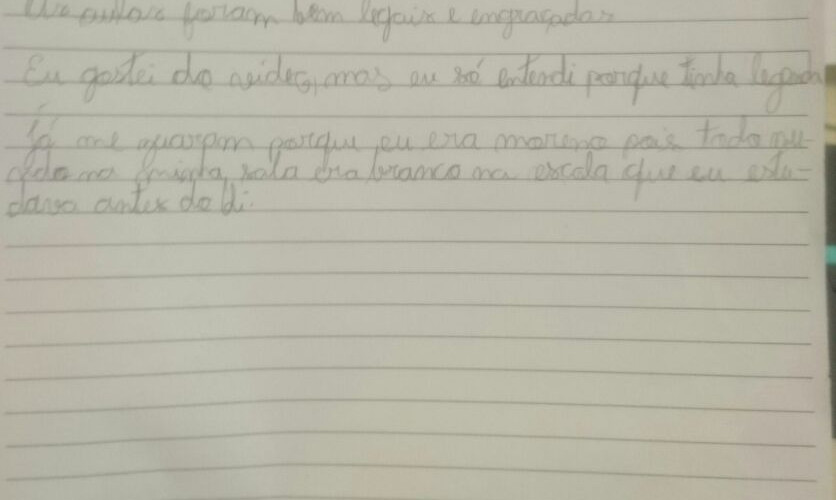 As aulas foram bem legais e engraçadas
Eu gostei do video, mas eu só entendi porque tinha legenda
Já me quaram porque eu era moreno pois todo mu-
do na minha sala era branco na escola que eu estu-
dava antes do